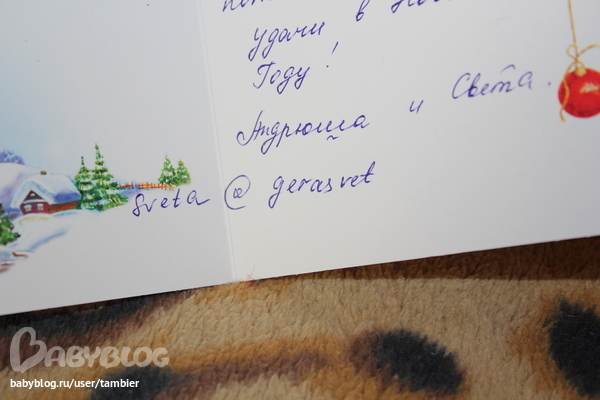 удачи в
Году!
Андрюша и Света.
Sveta @ gerasvet
BABYBLOG
babyblog.ru/user/tambier